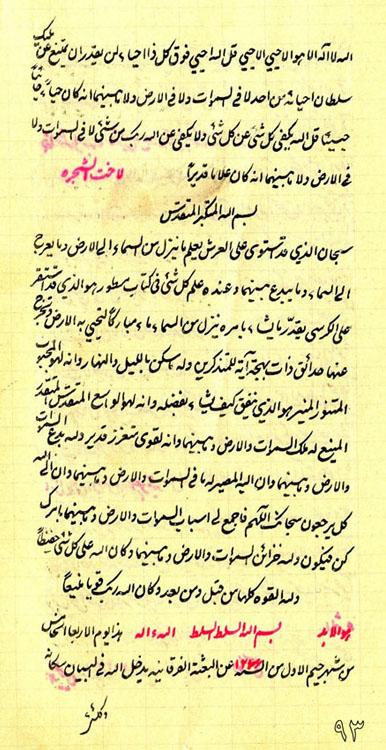 الله لا اله الا هو الاحيي الاحيي قل الله احيي فوق كل ذا احياء لن يقدر ان يمتنع عن مليك
سلطان احيائه من احد لا في السموات ولا في الارض ولا ما بينهما انه كان حياء
قل الله يكفي كل شئ عن كل شئ ولا يكفي عن الله ربك من شئ لا في السموات ولا
في الارض ولا ما بينهما انه كان علاما قديرا
لاخت الشجره
بسم الله المتكبر المتقدس
سبحان الذي قد استوى على العرش يعلم ما ينزل من السماء الى الارض وما يعرج
الى السماء وما يبدع بينهما وعنده علم كل شئ في كتاب مسطور هو الذي قد استقر
على الكرسي يقدر ما يشاء بامره ينزل من السماء ماء مباركا لتحيي به الارض وتخرج
عنها حدائق ذات بهجة آية للمتذكرين وله ما سكن بالليل والنهار وانه لهو المحبوب
المتنور المنير هو الذي ينفق كيف يشاء بفضله وانه لهو الواسع المتقدس المتقدر
المنيع له ملك السموات والارض وما بينهما وانه لقوى متعزز قدير وله بدع السموات
والارض وما بينهما وان اليه المصير له ما في السموات والارض وما بينهما وان الى الله
كل يرجعون سبحانك اللهم فاجمع لي اسباب السموات والارض وما بينهما بامرك
كن فيكون ولله خزائن السموات والارض وما بينهما وكان الله على كل شئ حفيظا
ولله القوه كلها من قبل ومن بعد وكان الله ربك قويا منيعا
هو الابد بسم الله السلط السلط الله ءاله هذا يوم الاربعا الخامس
من شهر جيم الاول من السنه ١٢٦٦ عن البعثة الفرقانيه يدخل الله في البيان سكانه
٩٣